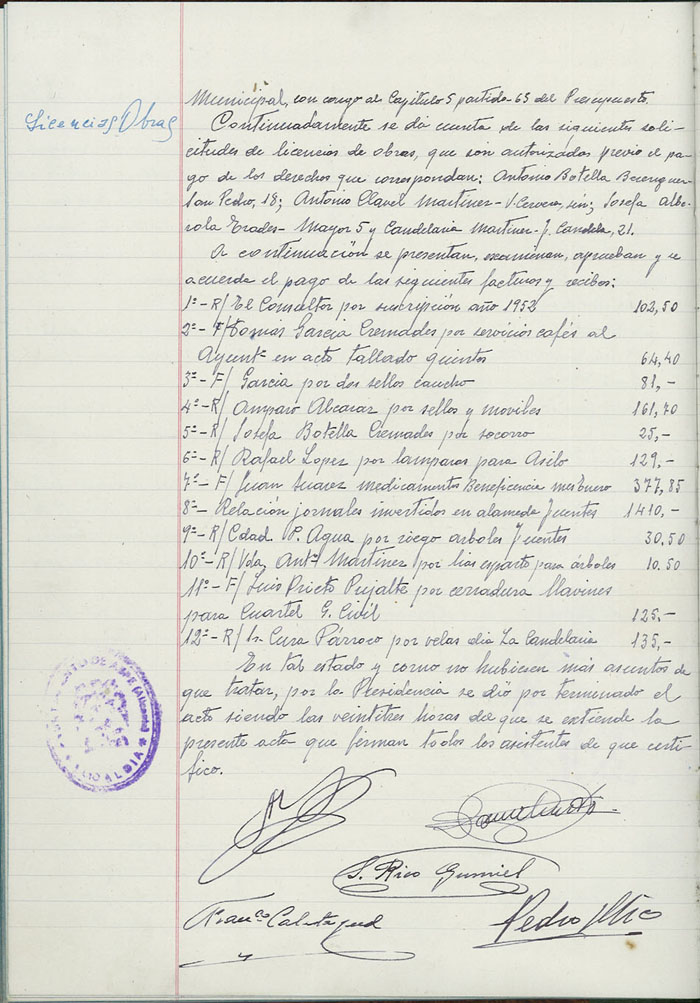 Licencias Obras
Municipal, con cargo al Capitulo 5 partida-65 del Presupuesto.
Continuadamente se da cuenta de las siguientes soli-
citudes de licencias de obras, que son autorizadas previo el pa-
go de los derechos que correspondan: Antonio Botella Berenguer-
San Pedro, 18; Antonio Clavel Martinez- V. Cervera, s/n; Josefa Albe-
rola Erades- Mayor 5 y Candelaria Martinez- J. Candela, 21.
A continuación se presentan, examinan, aprueban y se
acuerda el pago de las siguientes facturas y recibos:
1º- R/ El Consultor por suscripción año 1952 102,50
2º- F/ Tomás Garcia Cremades por servicios cafés al
Ayuntº en acto tallado quintos 64,40
3º- F/ Garcia por dos sellos caucho 81,-
4º- R/ Amparo Alcaraz por sellos y moviles 161,70
5º- R/ Josefa Botella Cremades por socorro 25,-
6º- R/ Rafael Lopez por lamparas para Asilo 129,-
7º- F/ Juan Suarez medicamentos Beneficencia mes Enero 377,85
8º- Relación jornales invertidos en alameda Fuentes 1410,-
9º- R/ Cdad. P. Agua por riego arboles Fuentes 30,50
10º- R/ Vda, Antº Martinez por lias esparto para árboles 10.50
11º- F/ Luis Prieto Pujalte por cerradura llavines
para Cuartel G. Civil 125,-
12º- R/ Sr. Cura Párroco por velas dia La Candelaria 135,-
En tal estado y como no hubiesen más asuntos de
que tratar, por la Presidencia se dió por terminado el
acto siendo las veintitres horas de que se extiende la
presente acta que firman todos los asistentes de que certi-
fico.
AYUNTAMIENTO DE ASPE (Alicante)
ALCALDIA
S. Rico Gumiel
Franco Calatayud
Pedro Rico